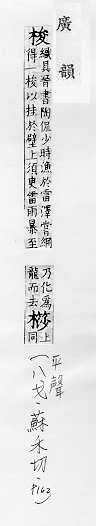 廣韻
梭 織具晉書陶侃少時漁於雷澤嘗網
得一梭以挂於壁上須臾雷雨暴至
乃化為
龍而去 𣔱 上
同
平聲
一八戈·蘇禾切·P162